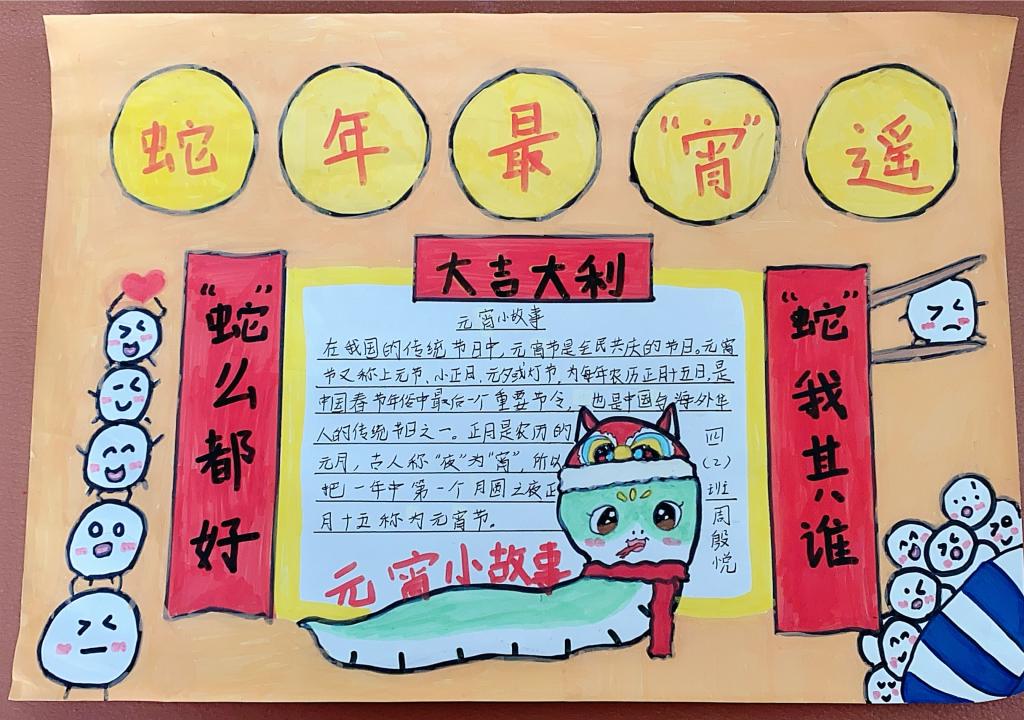 蛇年最“宵”遥
大吉大利
“蛇”么都好
“蛇”我其谁
元宵小故事
在我国的传统节日中，元宵节是全民共庆的节日。元宵
节又称上元节、小正日、元夕或灯节，为每年农历正月十五日，是
中国春节年俗中最后一个重要节令，也是中国与海外华
人的传统节日之一。正月是农历的
元月，古人称“夜”为“宵”，所以
把一年中第一个月圆之夜正
月十五称为元宵节。
元宵小故事
四(2)班周殷悦